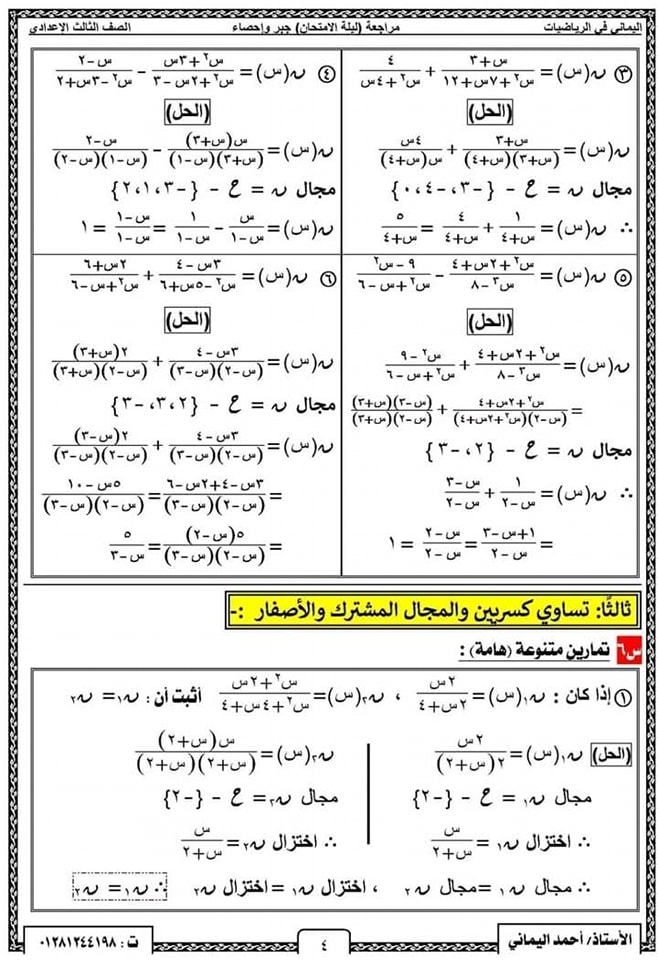 اليماني في الرياضيات مراجعة (ليلة الامتحان) جبر وإحصاء الصف الثالث الإعدادي
③ ن(س) = (س+٣)/(س٢+٧س+١٢) + ٤/(س٢+٤س)
(الحل)
ن(س) = (س+٣)/((س+٣)(س+٤)) + ٤س/(س(س+٤))
مجال ن = ح - {-٣، -٤، ٠}
∴ ن(س) = ١/(س+٤) + ٤/(س+٤) = ٥/(س+٤)
④ ن(س) = (س٢+٣س)/(س٢+٢س-٣) - (س-٢)/(س٢-٣س+٢)
(الحل)
ن(س) = س(س+٣)/((س+٣)(س-١)) - (س-٢)/((س-١)(س-٢))
مجال ن = ح - {-٣، ١، ٢}
ن(س) = س/(س-١) - ١/(س-١) = (س-١)/(س-١) = ١
⑤ ن(س) = (س٢+٢س+٤)/(س٣-٨) - (٩-س٢)/(س٢+س-٦)
(الحل)
ن(س) = (س٢+٢س+٤)/(س٣-٨) + (س٢-٩)/(س٢+س-٦)
= (س٢+٢س+٤)/((س-٢)(س٢+٢س+٤)) + (س-٣)(س+٣)/((س-٢)(س+٣))
مجال ن = ح - {٢، -٣}
∴ ن(س) = ١/(س-٢) + (س-٣)/(س-٢)
= (١+س-٣)/(س-٢) = (س-٢)/(س-٢) = ١
⑥ ن(س) = (٣س-٤)/(س٢-٥س+٦) + (٢س+٦)/(س٢+س-٦)
(الحل)
ن(س) = (٣س-٤)/((س-٢)(س-٣)) + ٢(س+٣)/((س-٢)(س+٣))
مجال ن = ح - {٢، ٣، -٣}
ن(س) = (٣س-٤)/((س-٢)(س-٣)) + ٢(س-٣)/((س-٢)(س-٣))
= (٣س-٤+٢س-٦)/((س-٢)(س-٣)) = (٥س-١٠)/((س-٢)(س-٣))
= ٥(س-٢)/((س-٢)(س-٣)) = ٥/(س-٣)
ثالثًا: تساوي كسريين والمجال المشترك والأصفار :-
س٦ تمارين متنوعة (هامة) :
① إذا كان : ن١(س) = ٢س/(٢س+٤) ، ن٢(س) = (س٢+٢س)/(س٢+٤س+٤) أثبت أن : ن١ = ن٢
(الحل) ن١(س) = ٢س/(٢(س+٢))
مجال ن١ = ح - {-٢}
∴ اختزال ن١ = س/(س+٢)
ن٢(س) = س(س+٢)/((س+٢)(س+٢))
مجال ن٢ = ح - {-٢}
∴ اختزال ن٢ = س/(س+٢)
∴ مجال ن١ = مجال ن٢ ، اختزال ن١ = اختزال ن٢ ∴ ن١ = ن٢
الأستاذ/ أحمد اليماني ٤ ت : ٠١٢٨١٢٤٤١٩٨